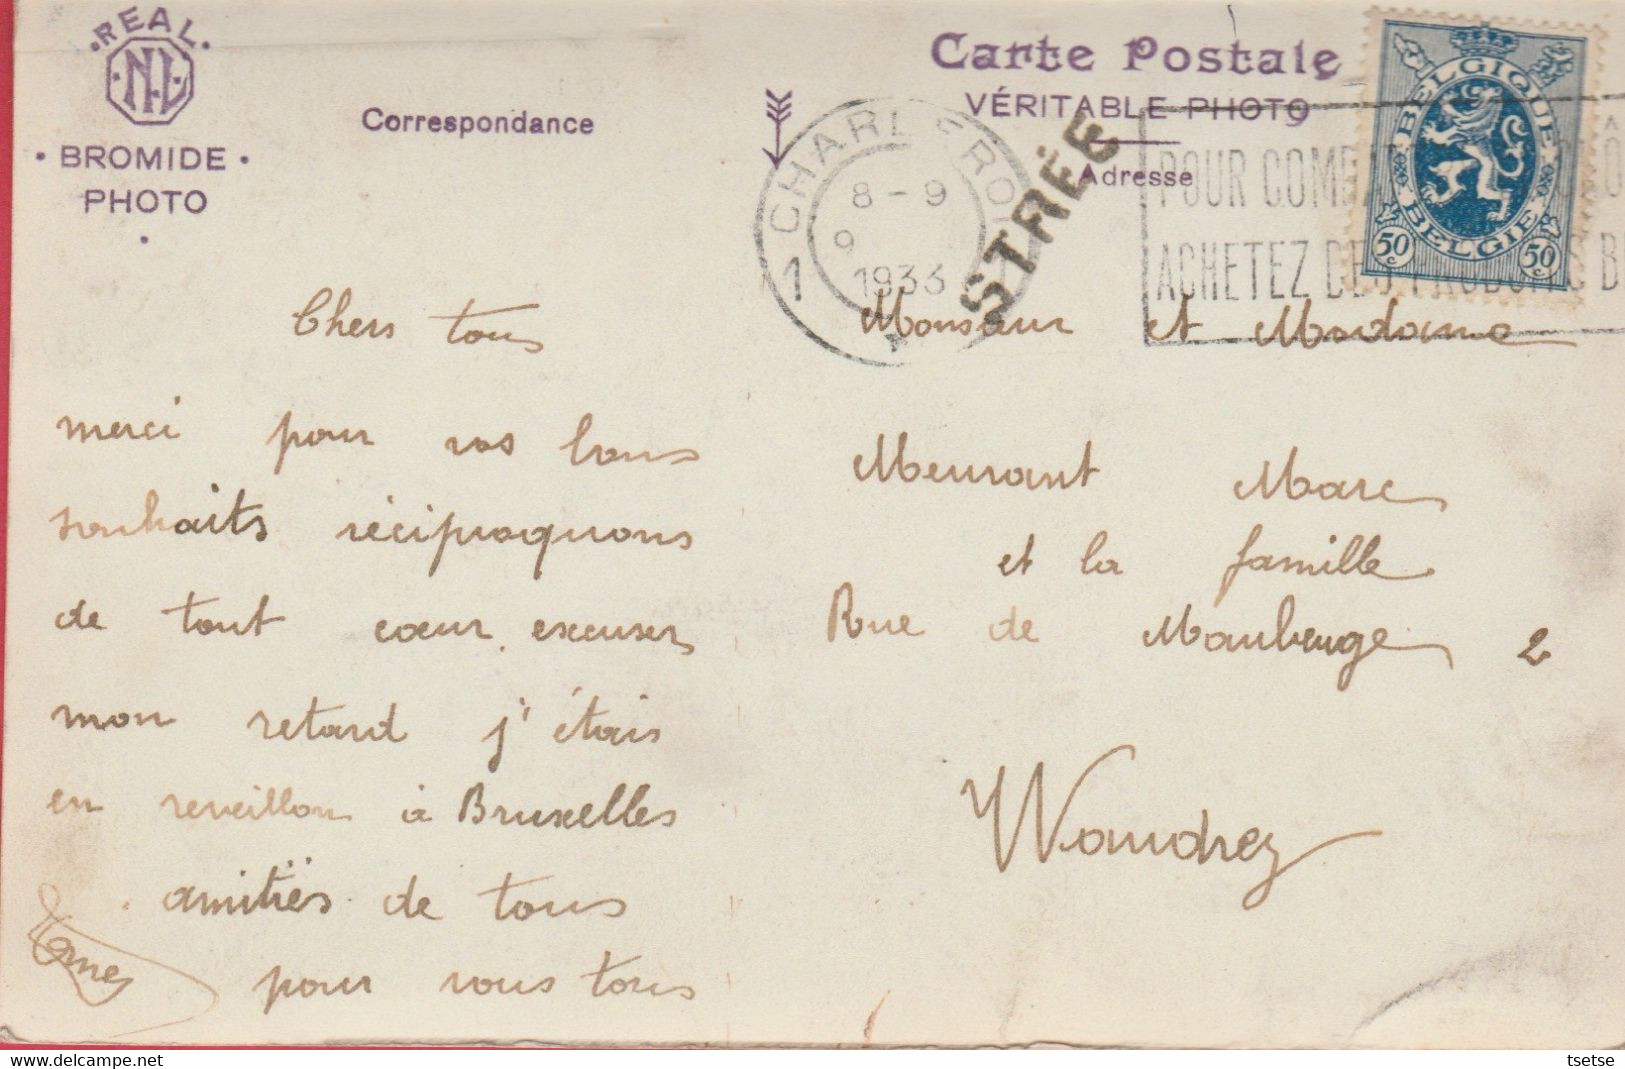 · REAL ·
NL
· BROMIDE ·
PHOTO
Correspondance
Carte Postale
VÉRITABLE PHOTO
Adresse
1 CHARLEROI
8 - 9
9
1933
STRÉE
POUR COMBA
ACHETEZ DES PRODUITS B
BELGIQUE
BELGIE
50 c
50 c
Chers tous
merci pour vos bons
souhaits réciproquons
de tout cœur. excuser
mon retard j'étais
en reveillon à Bruxelles
amitiés de tous
pour vous tous
Monsieur et Madame
Meurant Marc
et la famille
Rue de Maubeuge 2
Waudrez
tsetse